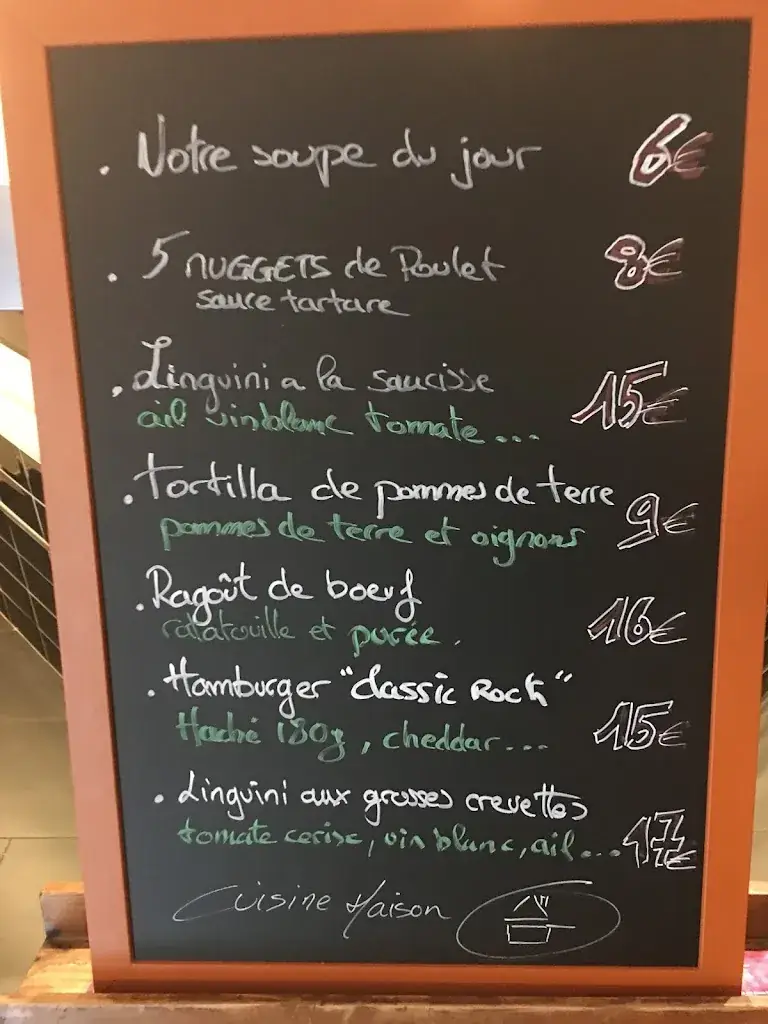 . Notre soupe du jour 6€
. 5 NUGGETS de Poulet 8€
sauce tartare
. Linguini a la saucisse 15€
ail vin blanc tomate ...
. Tortilla de pommes de terre 9€
pommes de terre et oignons
. Ragoût de boeuf 16€
ratatouille et purée .
. Hamburger "classic Rock" 15€
Haché 180g, cheddar...
. Linguini aux grosses crevettes 17€
tomate cerise, vin blanc, ail...
Cuisine Maison